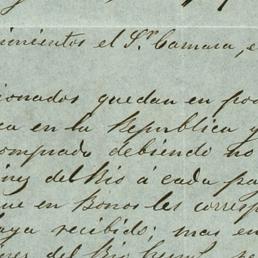 cimientos el Sr. Camara, e
cionados quedan en pod
ca en la Republica y
omprado debiendo no
iny del Rio á cada pa
ue en Bonos les corresp
aya recibido; mas en
del Rio